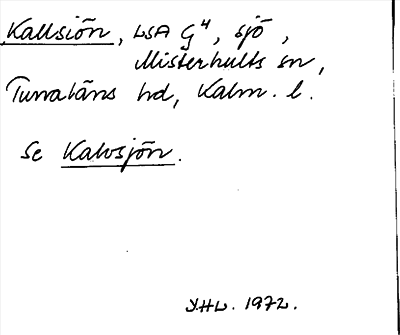 Kallsiön, LSA G4, sjö,
Misterhults sn,
Tunaläns hd, Kalm. l.
Se Kalvsjön.
Y.H.L. 1972.